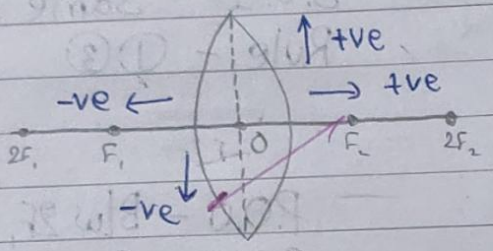 +ve
-ve ← → +ve
2F₁ F₁ O F₂ 2F₂
-ve